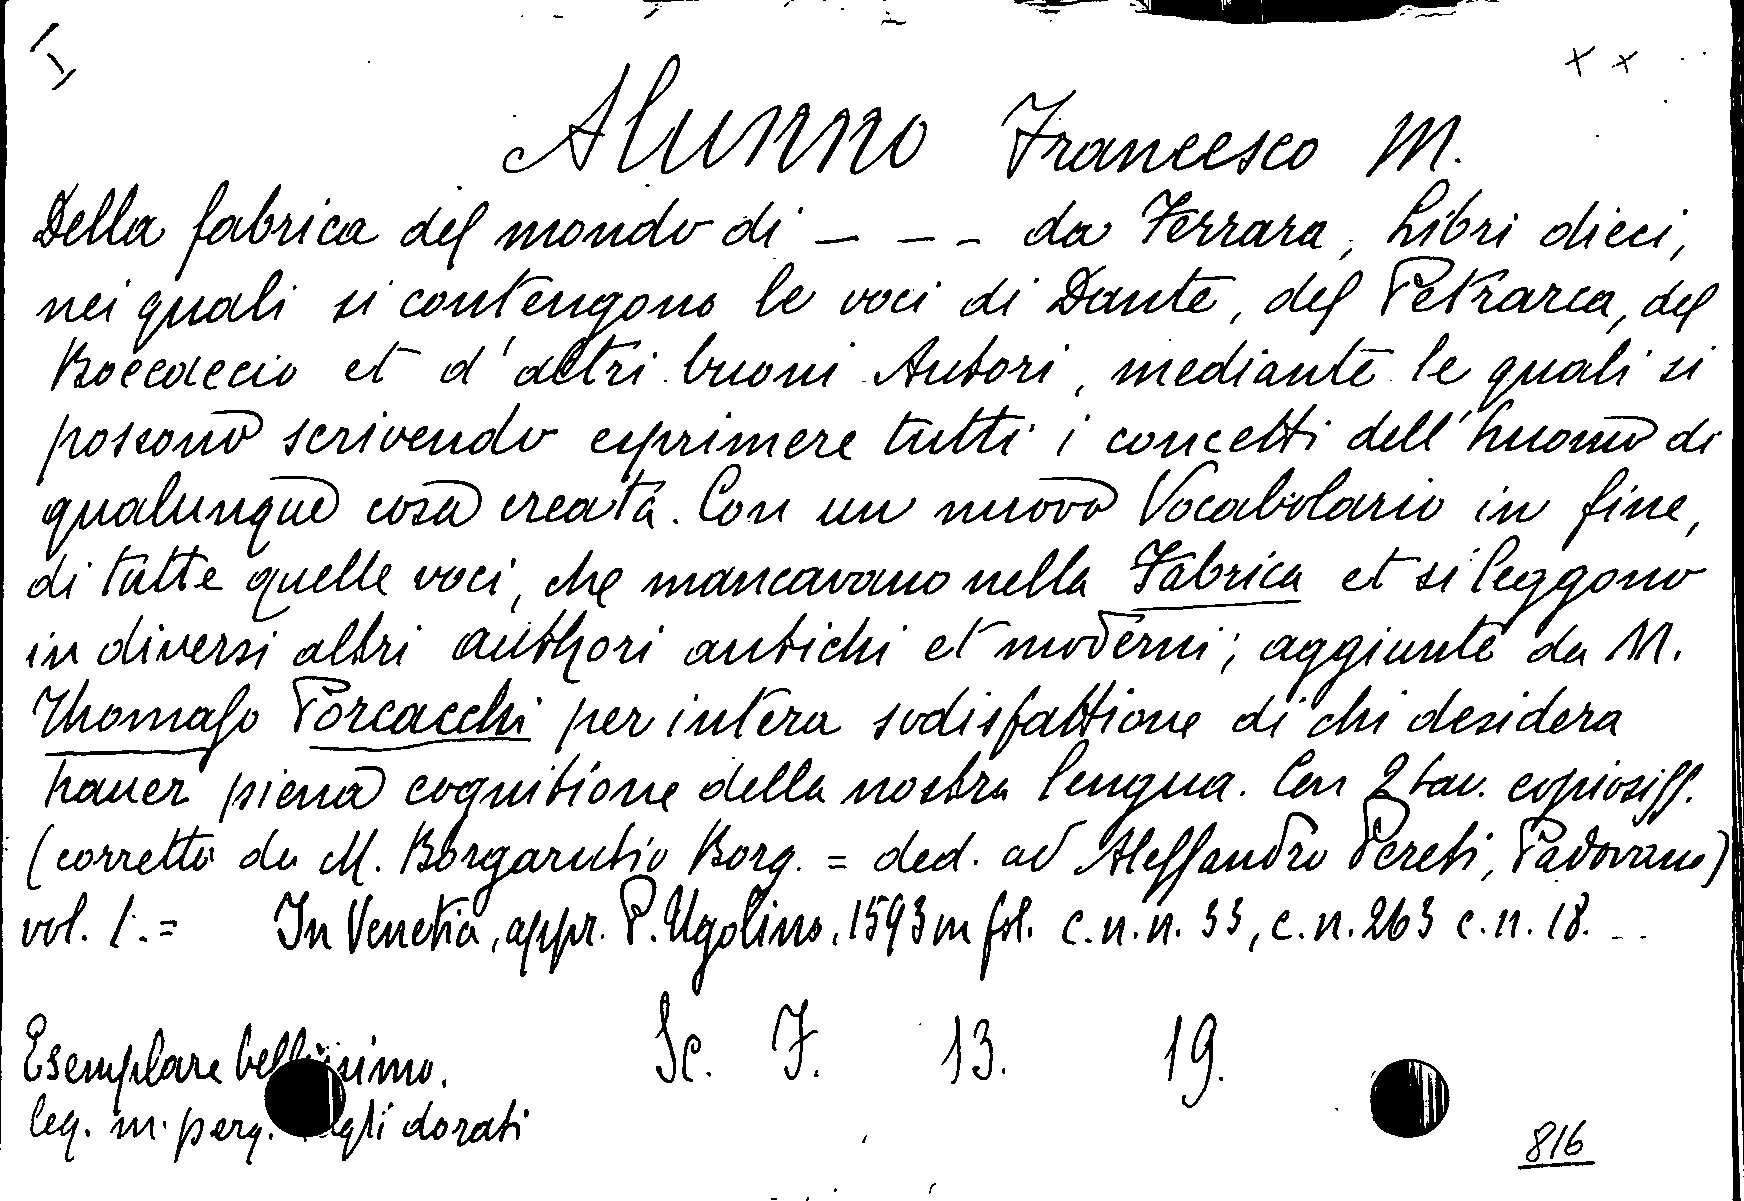 I x x
Alunno Francesco M.
Della fabrica del mondo di _ _ _ da Ferrara, Libri dieci,
nei quali si contengono le voci di Dante, del Petrarca, del
Boccaccio et d'altri buoni Autori, mediante le quali si
possono scrivendo esprimere tutti i concetti dell'huomo di
qualunque cosa creata. Con un nuovo Vocabolario in fine,
di tutte quelle voci, che mancavano nella Fabrica et si leggono
in diversi altri authori antichi et moderni; aggiunte da M.
Thomaso Porcacchi per intera sodisfattione di chi desidera
hauer piena cognitione della nostra lengua. Con 2 tav. copiosiss.
(corretto da M. Borgarutio Borg. = ded. ad Alessandro Pereti, Padovano)
vol. 1. = In Venetia, appr. P. Ugolino, 1593 in fol. c. n. n. 33, c. n. 263 c. n. 18. ..
Esemplare bellissimo. Sc. F. 13. 19.
leg. in perg. dorati
816